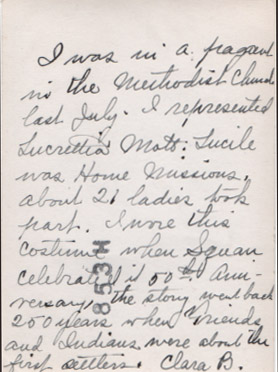 I was in a pagant
in the Methodist Church
last July. I represented
Lucrettia Mott: Lucile
was Home Missions,
about 21 ladies took
part. I wore this
costume when Squan
celebrated it 50th. Ann-
versary, the story went back
250 years when Friends
and Indians were about the
first settlers. Clara B.
853H